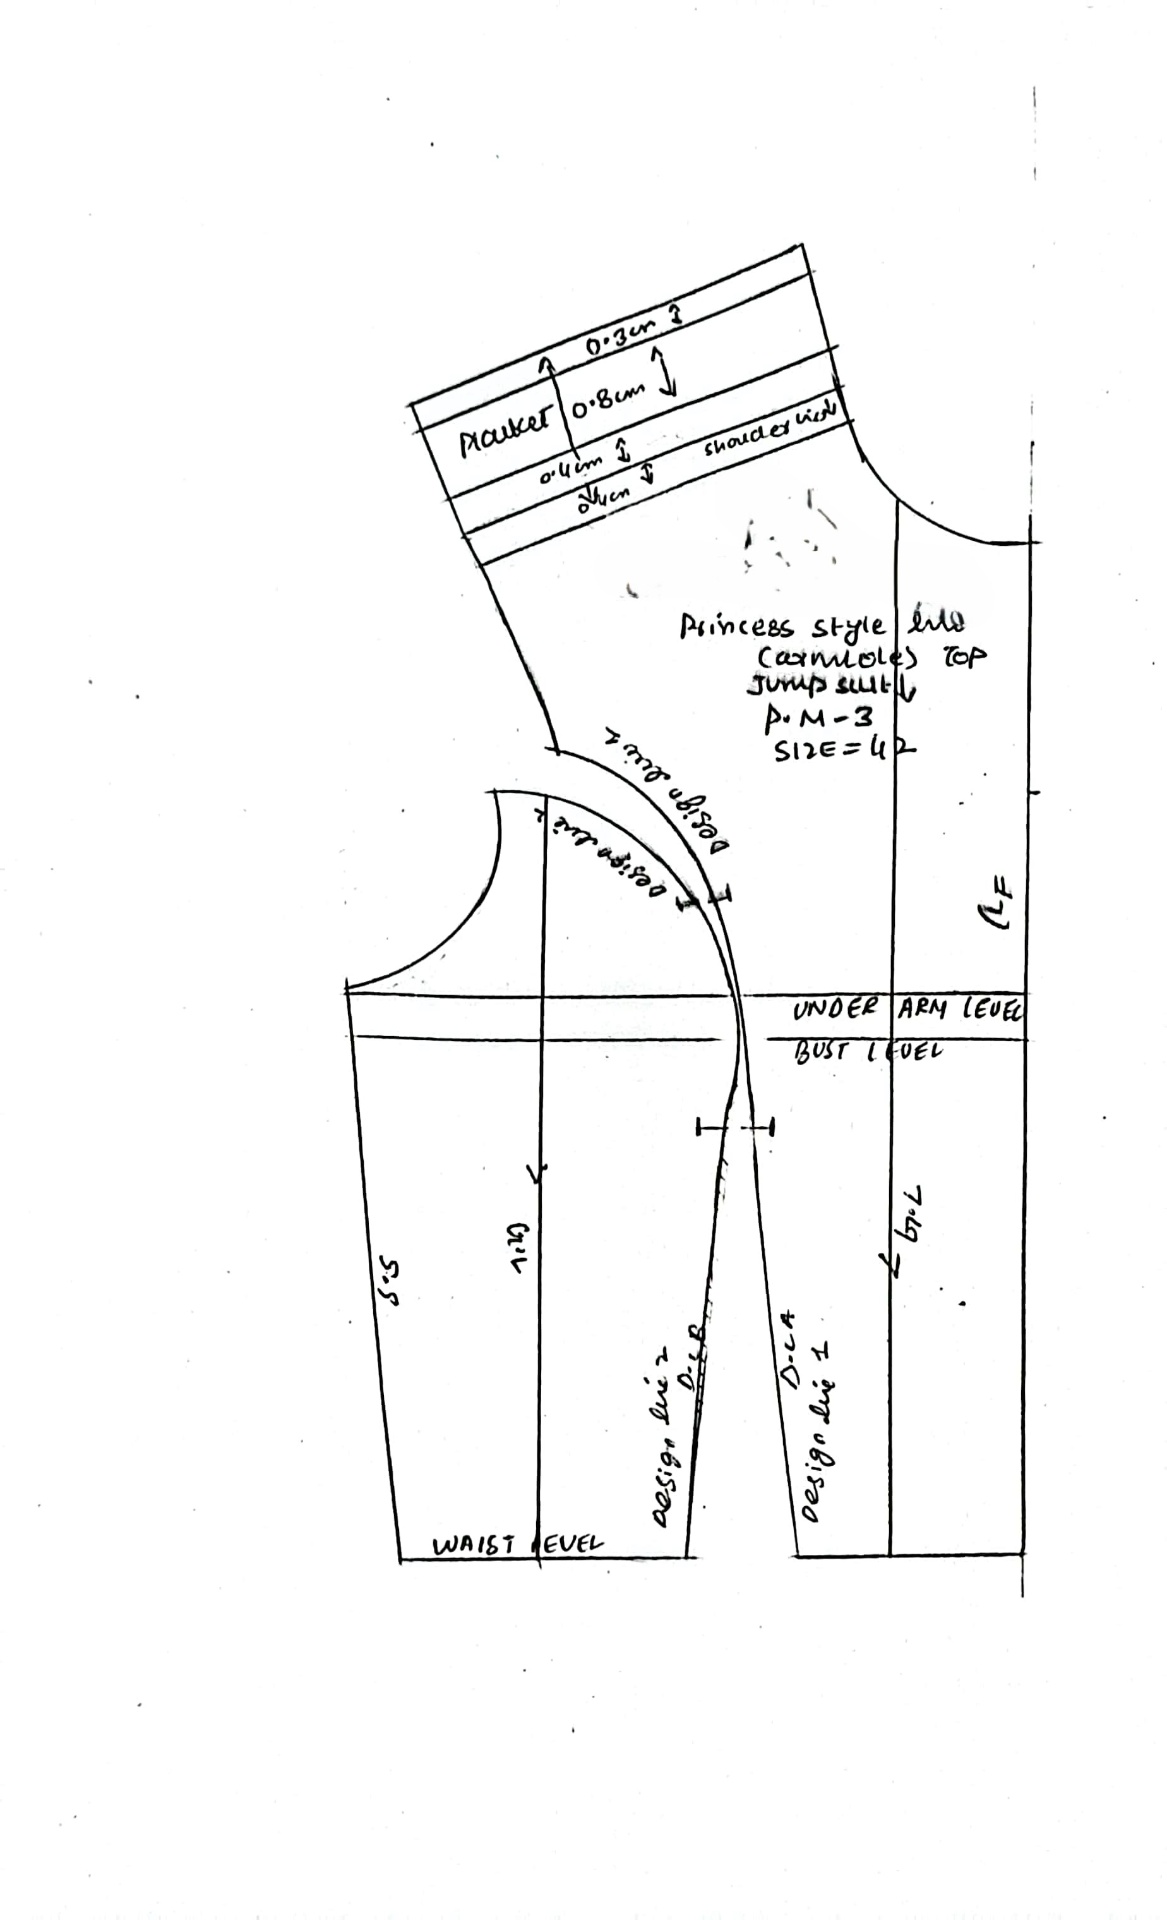 0.3cm
Placket
0.8cm
0.4cm
0.4cm
shoulder line
Princess style line
(armhole) TOP
Jumpsuit
P.M-3
SIZE=42
Design line 1
Design line 2
C.F
UNDER ARM LEVEL
BUST LEVEL
G.L
G.L
S.S
D.L B
Design line 2
D.L A
Design line 1
WAIST LEVEL